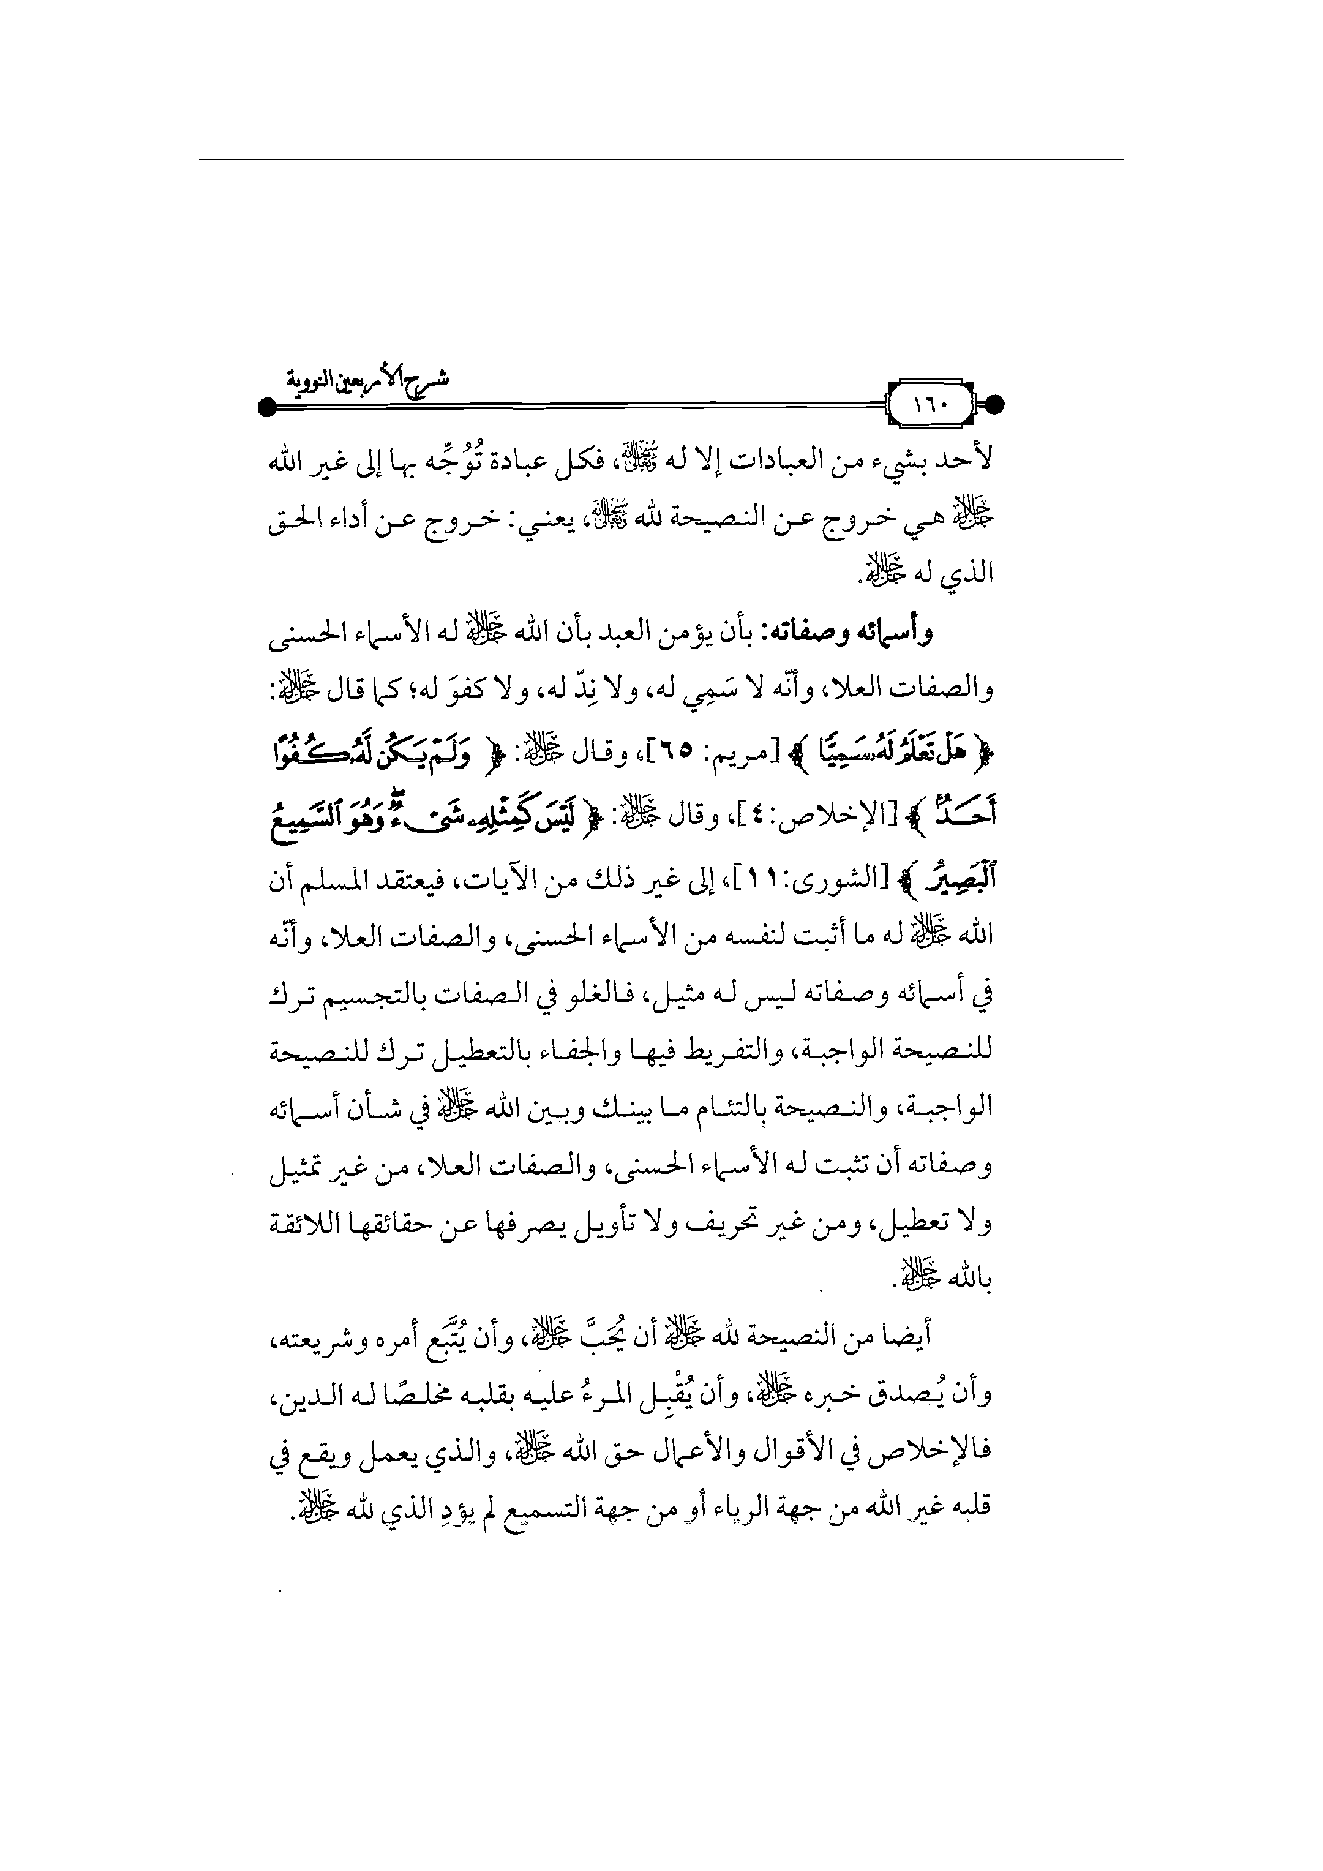 شرح الأربعين النووية
١٦٠
لأحد بشيء من العبادات إلا له ﷻ، فكل عبادة تُوُجِّه بها إلى غير الله
ﷻ هي خروج عن النصيحة لله ﷻ، يعني: خروج عن أداء الحق
الذي له ﷻ.
وأسمائه وصفاته: بأن يؤمن العبد بأن الله ﷻ له الأسماء الحسنى
والصفات العلا، وأنّه لا سَمِي له، ولا نِدّ له، ولا كفوَ له؛ كما قال ﷻ:
﴿ هَلْ تَعْلَمُ لَهُۥ سَمِيًّا ﴾ [مريم: ٦٥]، وقال ﷻ: ﴿ وَلَمْ يَكُن لَّهُۥ كُفُوًا
أَحَدٌۢ ﴾ [الإخلاص: ٤]، وقال ﷻ: ﴿ لَيْسَ كَمِثْلِهِۦ شَىْءٌ ۖ وَهُوَ ٱلسَّمِيعُ
ٱلْبَصِيرُ ﴾ [الشورى: ١١]، إلى غير ذلك من الآيات، فيعتقد المسلم أن
الله ﷻ له ما أثبت لنفسه من الأسماء الحسنى، والصفات العلا، وأنّه
في أسمائه وصفاته ليس له مثيل، فالغلو في الصفات بالتجسيم ترك
للنصيحة الواجبة، والتفريط فيها والجفاء بالتعطيل ترك للنصيحة
الواجبة، والنصيحة بالتئام ما بينك وبين الله ﷻ في شأن أسمائه
وصفاته أن تثبت له الأسماء الحسنى، والصفات العلا، من غير تمثيل
ولا تعطيل، ومن غير تحريف ولا تأويل يصرفها عن حقائقها اللائقة
بالله ﷻ.
أيضا من النصيحة لله ﷻ أن يُحَبَّ ﷻ، وأن يُتَّبع أمره وشريعته،
وأن يُصدق خبره ﷻ، وأن يُقْبِل المرءُ عليه بقلبه مخلصًا له الدين،
فالإخلاص في الأقوال والأعمال حق الله ﷻ، والذي يعمل ويقع في
قلبه غير الله من جهة الرياء أو من جهة التسميع لم يؤدِ الذي لله ﷻ.